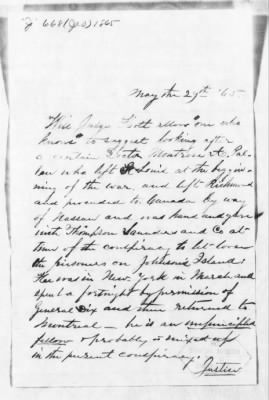 J 668 (JAO) 1865
May the 29th '65.
Will Judge Holt allow "one who
knows" to suggest looking after
a certain Doctor Montrose A. Pal-
len who left St Louis at the begin-
ning of the war, and left Richmond
and proceeded to Canada by way
of Nassau and was hand and glove
with Thompson Saunders and Co at
time of the conspiracy to let loose
the prisoners on Johnsons Island.
He was in New York in March and
spent a fortnight by permission of
General Dix and then returned to
Montreal — he is an unprincipled
fellow & probably is mixed up
in the present conspiracy.
Justice